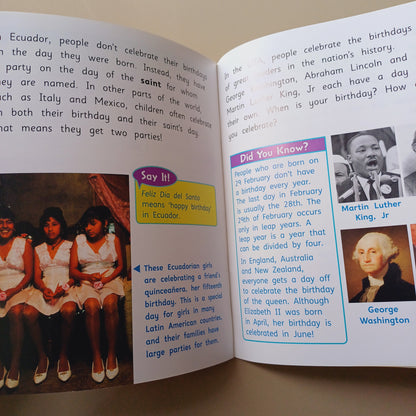 Ecuador, people don't celebrate their birthdays
the day they were born. Instead, they have
party on the day of the saint for whom
they are named. In other parts of the world,
such as Italy and Mexico, children often celebrate
both their birthday and their saint's day.
that means they get two parties!
Say It!
Feliz Dia del Santo
means 'happy birthday'
in Ecuador.
These Ecuadorian girls
are celebrating a friend's
quinceañera, her fifteenth
birthday. This is a special
day for girls in many
Latin American countries,
and their families have
large parties for them.
In the USA, people celebrate the birthdays
of great leaders in the nation's history.
George Washington, Abraham Lincoln and
Martin Luther King, Jr each have a day
their own. When is your birthday? How
you celebrate?
Did You Know?
People who are born on
29 February don't have
a birthday every year.
The last day in February
is usually the 28th. The
29th of February occurs
only in leap years. A
leap year is a year that
can be divided by four.
In England, Australia
and New Zealand,
everyone gets a day off
to celebrate the birthday
of the queen. Although
Elizabeth II was born
in April, her birthday is
celebrated in June!
Martin Luther
King, Jr
George
Washington